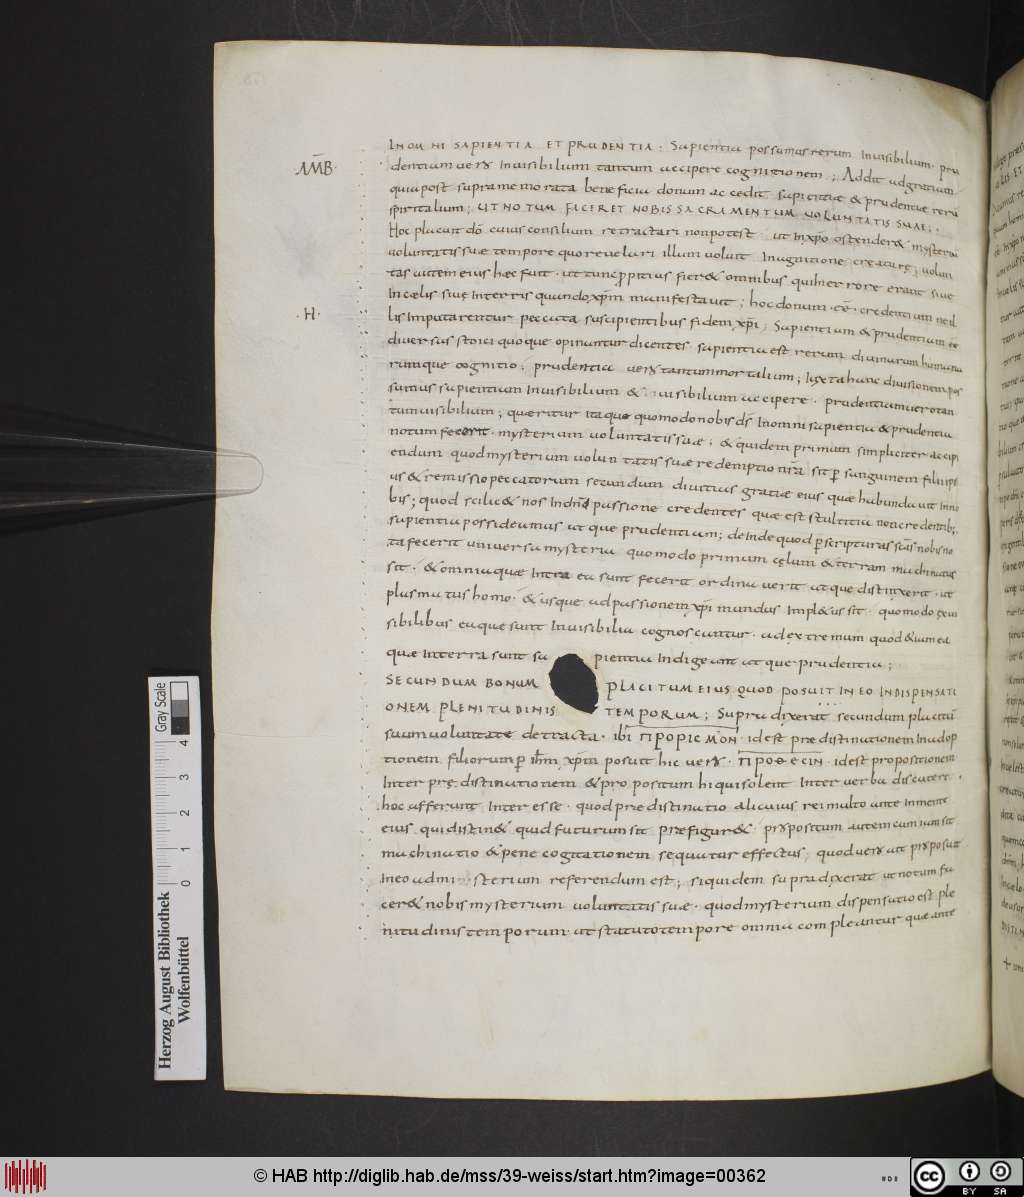 IN OMNI SAPIENTIA ET PRUDENTIA. Sapientia possumus rerum Inuisibilium. pru
AM̄B.
dentiam uero Inuisibilium tantum accipere cognitionem; Addit adgratiam
quia post supra memorata beneficia donum accedit sapientiae & prudentiae rerū
spiritalium; UT NOTUM FACERET NOBIS SACRAMENTUM UOLUNTATIS SUAE;
Hoc placuit dō. cuius consilium retractari nonpotest. ut Inxp̄o ostender& mysteriū
uoluntatis suae tempore quo reuelari illum uoluit Inagnitione creaturę; uolun
tas autem eius haec fuit. ut tunc ppitius fier& omnibus quiInerrore erant siue
Incaelis siue Interris quando xp̄m manifestauit; hoc donum. ēē. credentium ne il
.H.
lis Imputarentur peccata suscipientibus fidem xp̄i; Sapientiam & prudentiam ēē
diuersas stoici quoque opinantur dicentes sapientia est rerum diuinarum humana
rumque cognitio; prudentia uero tantum mortalium; Iuxta hanc diuisionem pos
sumus sapientiam Inuisibilium & uisibilium accipere. prudentiam uero tan
tum uisibilium; quaeritur itaque quomodo nobis ds̄ Inomni sapientia & prudentia
notum fecerit. mysterium uoluntatis suae; & quidem primum simpliciter accipi
endum quod mysterium uoluntatis suae redemptio nr̄a sit p sanguinem filii ipsi
us & remissio peccatorum secundum diuitias gratiae eius quae habundauit Inno
bis; quod scilic& nos Indn̄i passione credentes quae est stultitia noncredentib;
sapientia possideamus atque prudentiam; deinde quod p scripturas sc̄as nobis no
ta fecerit uniuersa mysteria quomodo primum cęlum & terram machinatus
sit. & omnia quae Intra ea sunt fecerit ordinauerit atque distinxerit. ut
plasmatus homo. & usque ad passionem xp̄i mundus Impl&us sit. quomodo exui
sibilibus eaque sunt Inuisibilia cognoscantur. ad extremum quod & iam ea
quae Interra sunt sa pientia Indigeant atque prudentia;
SECUNDUM BONUM PLACITUM EIUS QUOD POSUIT IN EO INDISPENSATI
ONEM PLENITUDINIS TEMPORUM; Supra dixerat secundum placitū
suum uoluntate detracta. ibi ΠΡΟΡΙCΜΟΝ. idest praedistinationem Inadop
tionem filiorum p ih̄m xp̄m posuit hic uero. ΠΡΟΘΕCΙΝ. idest propositionem
Inter prędistinationem & propositum hi quisolent Inter uerba discutere
hoc afferunt Inter esse. quod praedistinatio alicuius rei multo ante Inmente
eius qui distin& quid futurum sit praefigur&. propositum autem cum iam sit
machinatio & pene cogitationem sequatur effectus; quod uero ait proposuit
Ineo admi sterium referendum est; siquidem supradixerat ut notum fa
cer& nobis mysterium uoluntatis suae. quod mysterium dispensatio est ple
nitudinis temporum. ut statuto tempore omnia compleantur quae ante
Gray Scale
0 1 2 3 4
Herzog August Bibliothek
Wolfenbüttel
© HAB http://diglib.hab.de/mss/39-weiss/start.htm?image=00362
cc BY SA